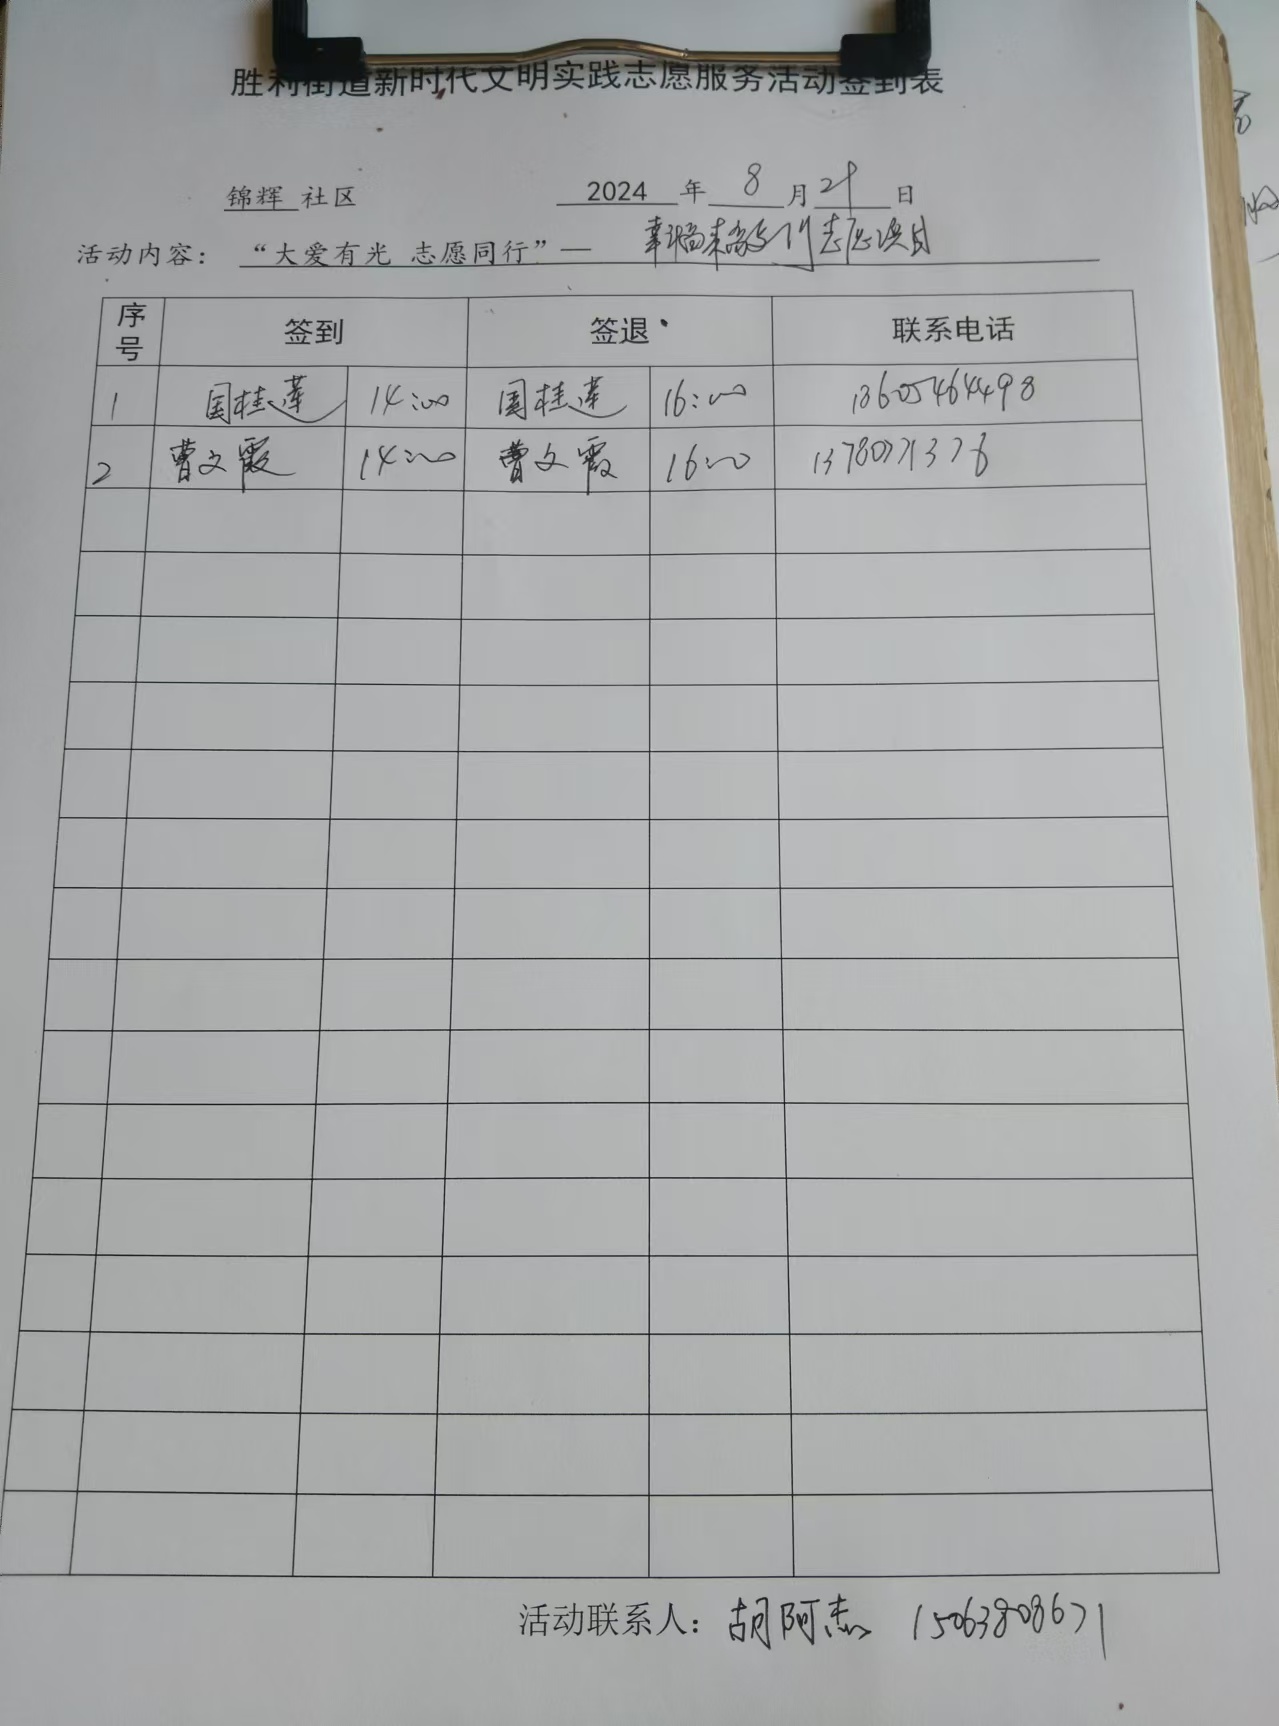 胜利街道新时代文明实践志愿服务活动签到表
锦辉 社区 2024 年 8 月 21 日
活动内容： “大爱有光 志愿同行”— 幸福来敲门志愿项目
序号 签到 签退 联系电话
1 国桂莲 14:00 国桂莲 16:00 13605464498
2 曹文霞 14:00 曹文霞 16:00
活动联系人： 胡阿志 15063808671